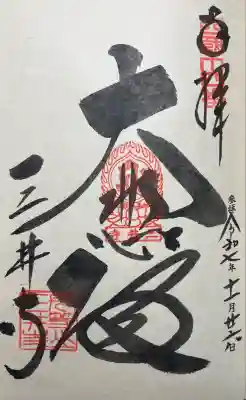 奉拝
令和七年十一月廿六日
大悲殿
三井寺